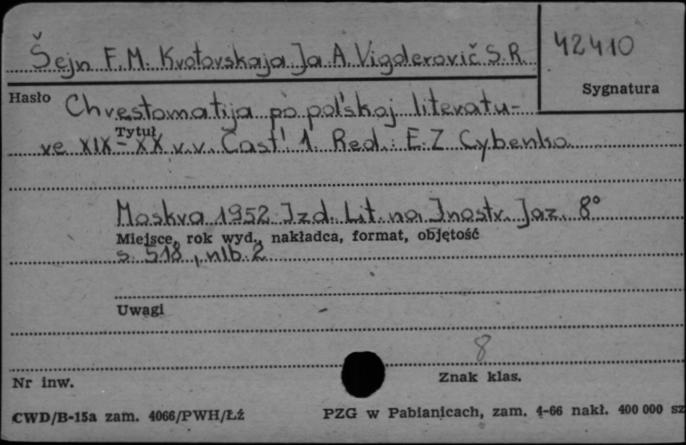 Šejn F.M. Krotovskaja Ja A. Vigderovič S.R.
42410
Sygnatura
Hasło
Chrestomatija po pol'skoj literatu-
Tytuł
re XIX-XX v.v. Čast' 1. Red.: E.Z Cybenko
Moskva 1952 Izd. Lit. na Inostr. Jaz. 8°
Miejsce, rok wyd., nakładca, format, objętość
s. 518, nlb. 2
Uwagi
8
Nr inw.
Znak klas.
CWD/B-15a zam. 4066/PWH/Łź
PZG w Pabianicach, zam. 4-66 nakł. 400 000 sz